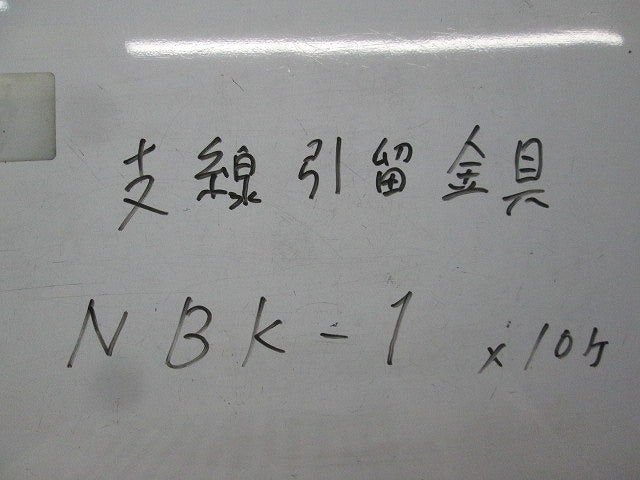 支線引留金具
NBK-1 ×10ケ